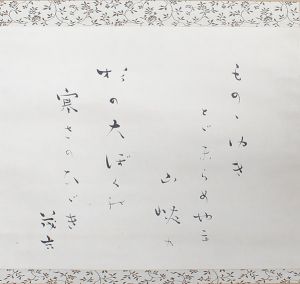 ものゝゆき
とどまらめやも
山峡の
杉の大ぼくの
寒さのひびき
茂吉